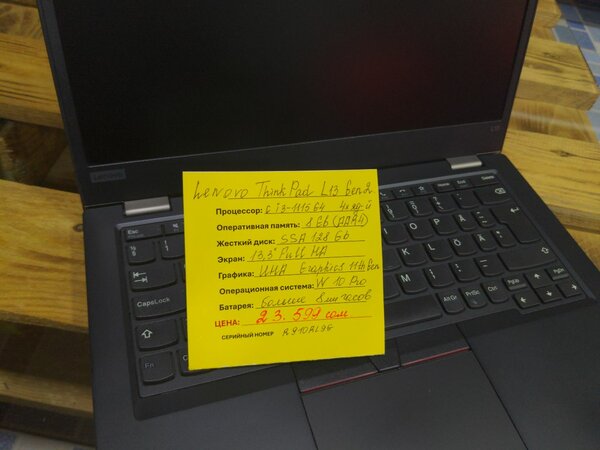 Lenovo
L13
Lenovo ThinkPad L13 Gen2
Процессор: C i3-1115G4 4х яд-й
Оперативная память: 8 Gb (DDR4)
Жесткий диск: SSD 128 Gb
Экран: 13,3" Full HD
Графика: UHD Graphics 11th Gen
Операционная система: W 10 Pro
Батарея: больше 8ми часов
ЦЕНА: 23.591 сом
СЕРИЙНЫЙ НОМЕР R910AL9G
Esc
CapsLock
Fn
Ctrl
AltGr
PrtSc
Ctrl
PgUp
PgDn